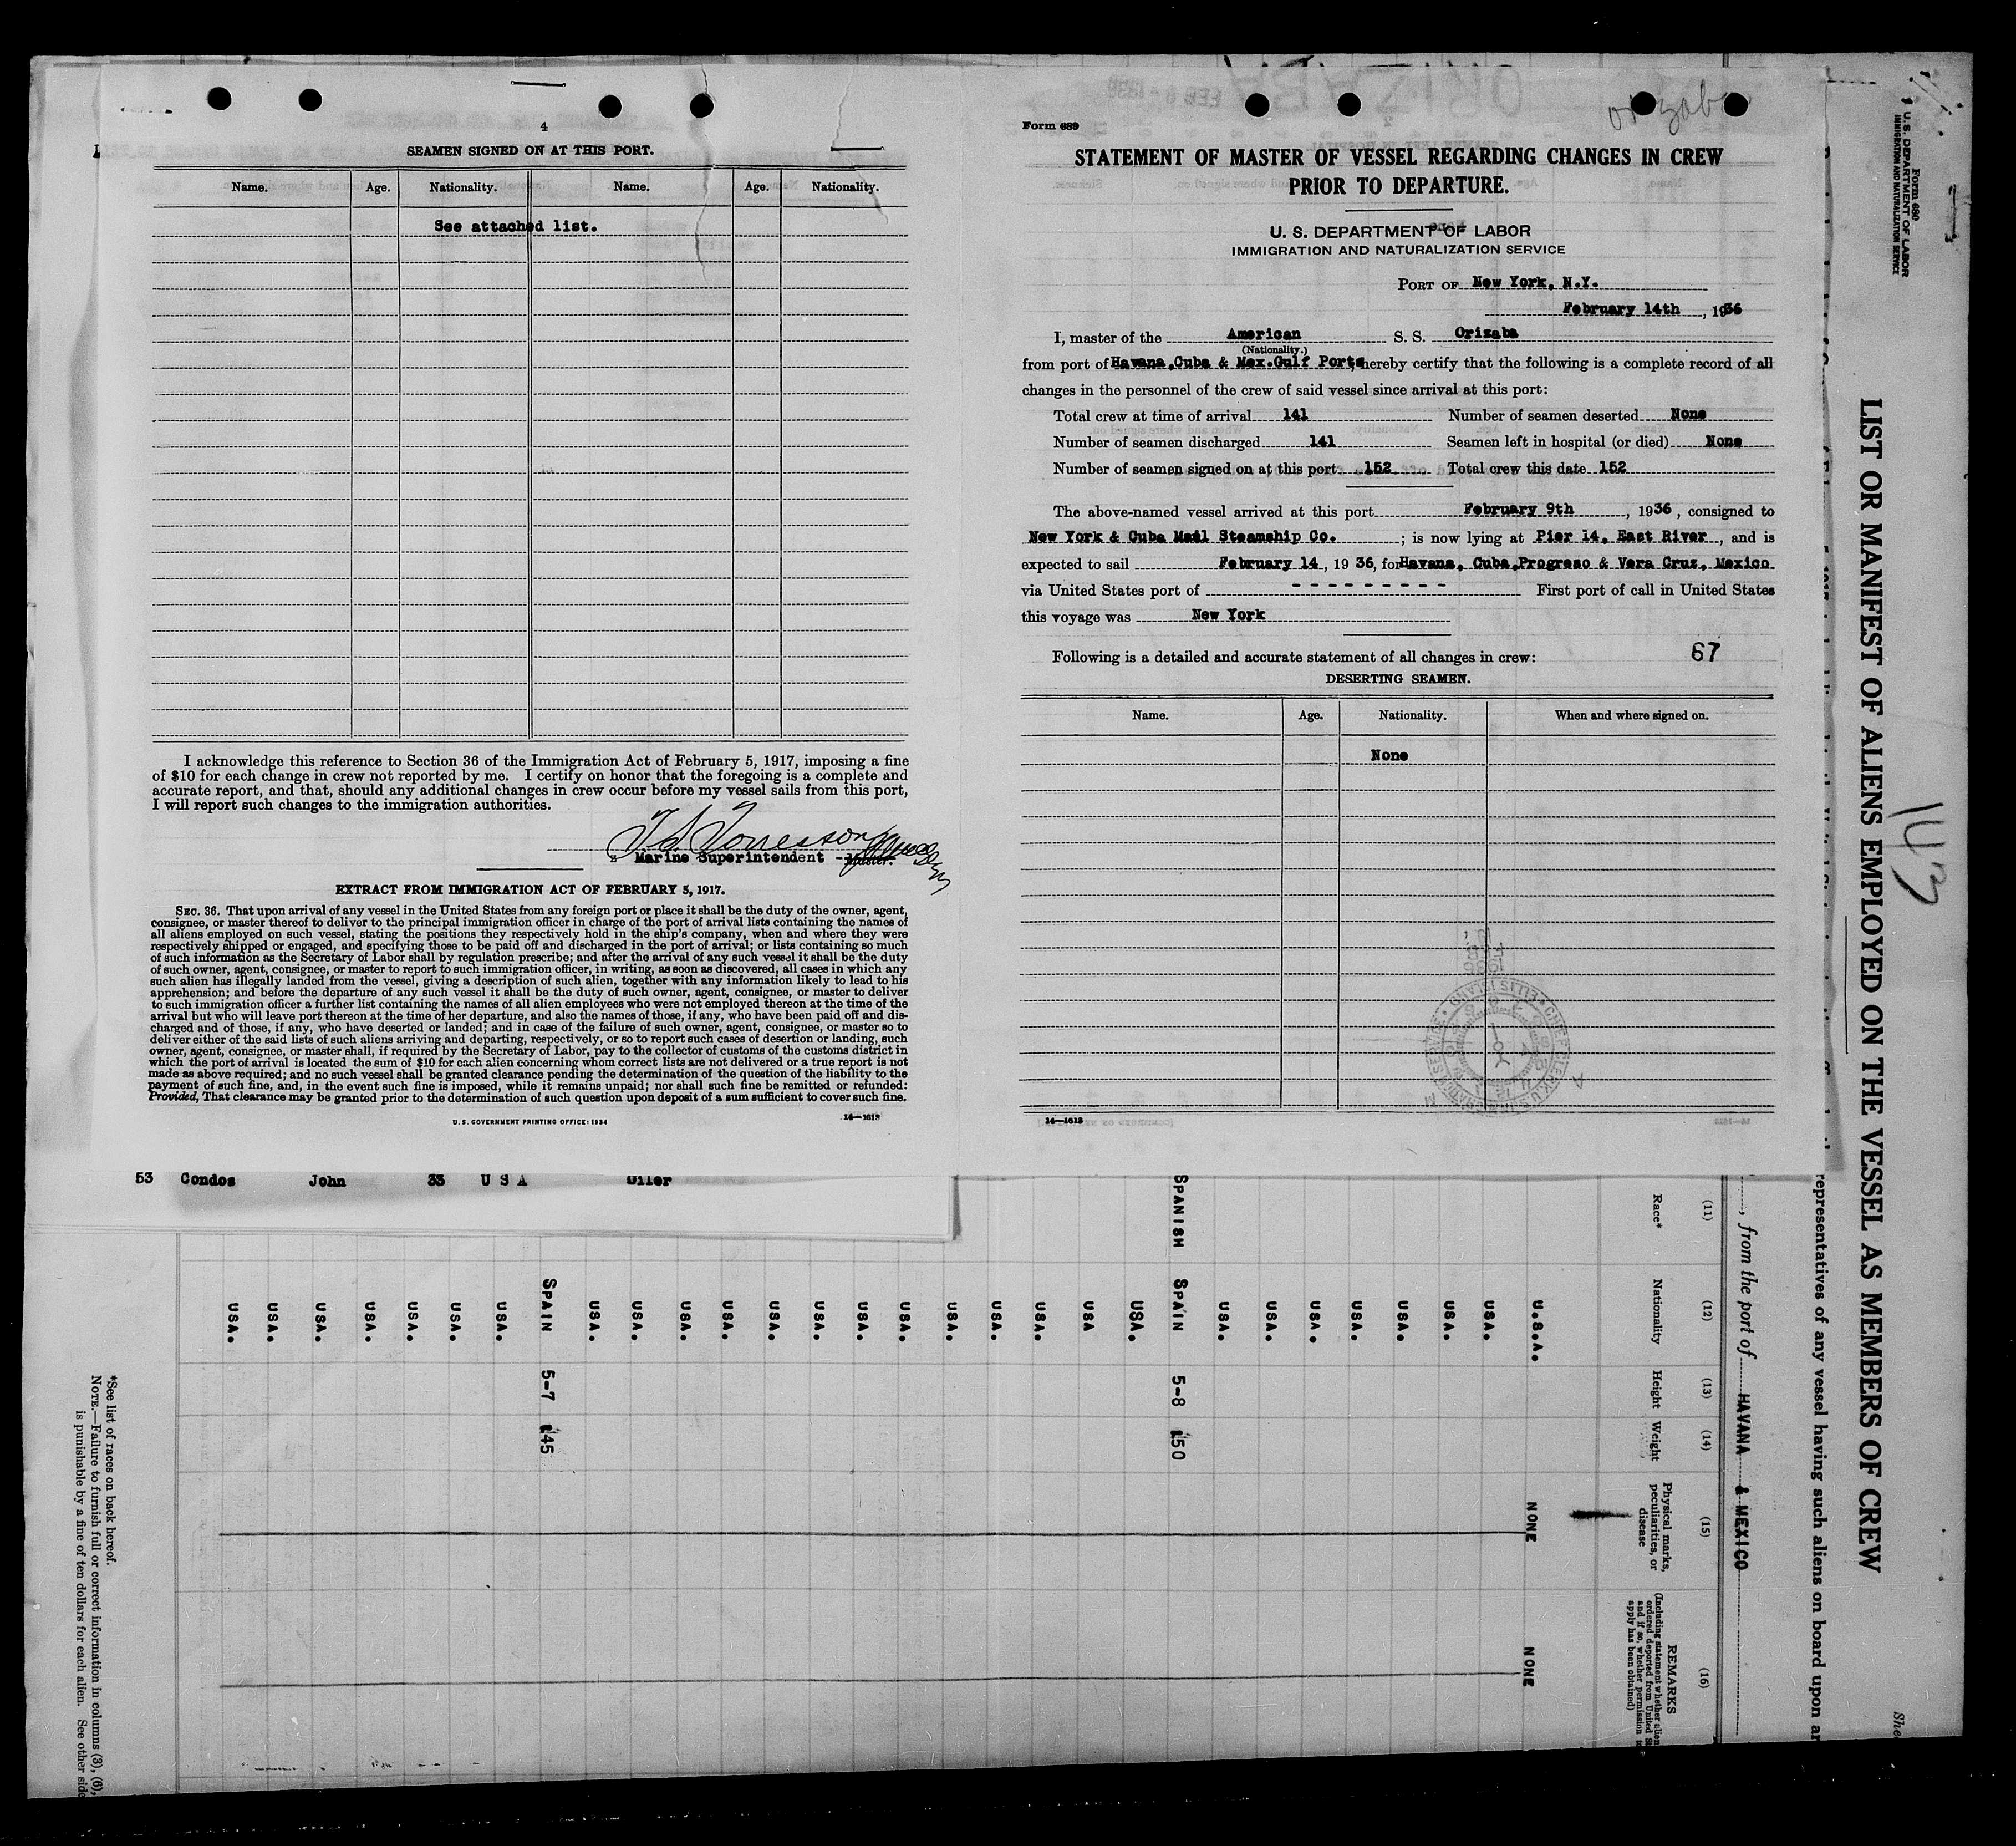 4
SEAMEN SIGNED ON AT THIS PORT.
Name. Age. Nationality. Name. Age. Nationality.
See attached list.
I acknowledge this reference to Section 36 of the Immigration Act of February 5, 1917, imposing a fine
of $10 for each change in crew not reported by me. I certify on honor that the foregoing is a complete and
accurate report, and that, should any additional changes in crew occur before my vessel sails from this port,
I will report such changes to the immigration authorities.
Marine Superintendent Master.
EXTRACT FROM IMMIGRATION ACT OF FEBRUARY 5, 1917.
SEC. 36. That upon arrival of any vessel in the United States from any foreign port or place it shall be the duty of the owner, agent,
consignee, or master thereof to deliver to the principal immigration officer in charge of the port of arrival lists containing the names of
all aliens employed on such vessel, stating the positions they respectively hold in the ship's company, when and where they were
respectively shipped or engaged, and specifying those to be paid off and discharged in the port of arrival; or lists containing so much
of such information as the Secretary of Labor shall by regulation prescribe; and after the arrival of any such vessel it shall be the duty
of such owner, agent, consignee, or master to report to such immigration officer, in writing, as soon as discovered, all cases in which any
such alien has illegally landed from the vessel, giving a description of such alien, together with any information likely to lead to his
apprehension; and before the departure of any such vessel it shall be the duty of such owner, agent, consignee, or master to deliver
to such immigration officer a further list containing the names of all alien employees who were not employed thereon at the time of the
arrival but who will leave port thereon at the time of her departure, and also the names of those, if any, who have been paid off and dis-
charged and of those, if any, who have deserted or landed; and in case of the failure of such owner, agent, consignee, or master so to
deliver either of the said lists of such aliens arriving and departing, respectively, or so to report such cases of desertion or landing, such
owner, agent, consignee, or master shall, if required by the Secretary of Labor, pay to the collector of customs of the customs district in
which the port of arrival is located the sum of $10 for each alien concerning whom correct lists are not delivered or a true report is not
made as above required; and no such vessel shall be granted clearance pending the determination of the question of the liability to the
payment of such fine, and, in the event such fine is imposed, while it remains unpaid; nor shall such fine be remitted or refunded:
Provided, That clearance may be granted prior to the determination of such question upon deposit of a sum sufficient to cover such fine.
U. S. GOVERNMENT PRINTING OFFICE: 1934
14—1613
Form 689
orizaba
STATEMENT OF MASTER OF VESSEL REGARDING CHANGES IN CREW
PRIOR TO DEPARTURE.
U. S. DEPARTMENT OF LABOR
IMMIGRATION AND NATURALIZATION SERVICE
PORT OF New York, N.Y.
February 14th, 1936
I, master of the American S. S. Orizaba
(Nationality.)
from port of Havana,Cuba & Mex.Gulf Ports, hereby certify that the following is a complete record of all
changes in the personnel of the crew of said vessel since arrival at this port:
Total crew at time of arrival 141 Number of seamen deserted None
Number of seamen discharged 141 Seamen left in hospital (or died) None
Number of seamen signed on at this port 152 Total crew this date 152
The above-named vessel arrived at this port February 9th, 1936, consigned to
New York & Cuba Mail Steamship Co. ; is now lying at Pier 14, East River, and is
expected to sail February 14, 1936, for Havana, Cuba,Progreso & Vera Cruz, Mexico
via United States port of - - - - - - - - - First port of call in United States
this voyage was New York
Following is a detailed and accurate statement of all changes in crew:
67
DESERTING SEAMEN.
Name. Age. Nationality. When and where signed on.
None
14—1613
53 Condos John 33 U S A Oiler
Form 680
U. S. DEPARTMENT OF LABOR
IMMIGRATION AND NATURALIZATION SERVICE
LIST OR MANIFEST OF ALIENS EMPLOYED ON THE VESSEL AS MEMBERS OF CREW
143
representatives of any vessel having such aliens on board upon
, from the port of HAVANA & MEXICO
(11) (12) (13) (14) (15) (16)
Race* Nationality Height Weight Physical marks, peculiarities, or disease REMARKS
(Including statement whether alien
ordered deported from United
and if so, whether permission
apply has been obtained)
U.S.A. NONE NONE
USA.
USA.
USA.
USA.
USA.
USA.
USA.
SPANISH SPAIN 5-8 150
USA.
USA
USA.
USA.
USA.
USA.
USA.
USA.
USA.
USA.
USA.
USA.
USA.
SPAIN 5-7 145
USA.
USA.
USA.
USA.
USA.
USA.
USA.
*See list of races on back hereof.
NOTE.—Failure to furnish full or correct information in columns (3), (6),
is punishable by a fine of ten dollars for each alien. See other side